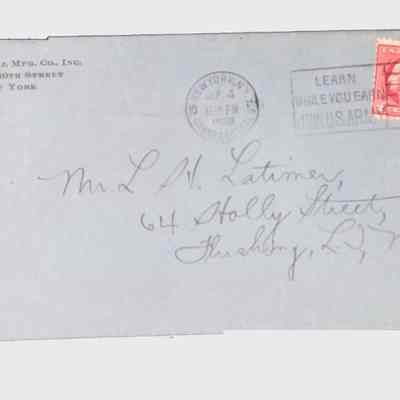 Mfg. Co., Inc.
30th Street
York
NEW YORK, N.Y.
LEARN
WHILE YOU EARN
JOIN U.S. ARMY
Mr. L. H. Latimer,
64 Holly Street,
Flushing, L.I.,